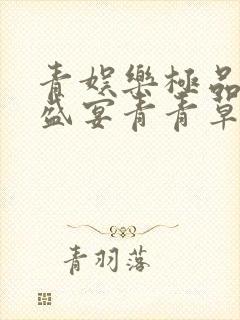 青娛樂極品
盛宴青青草
青羽落